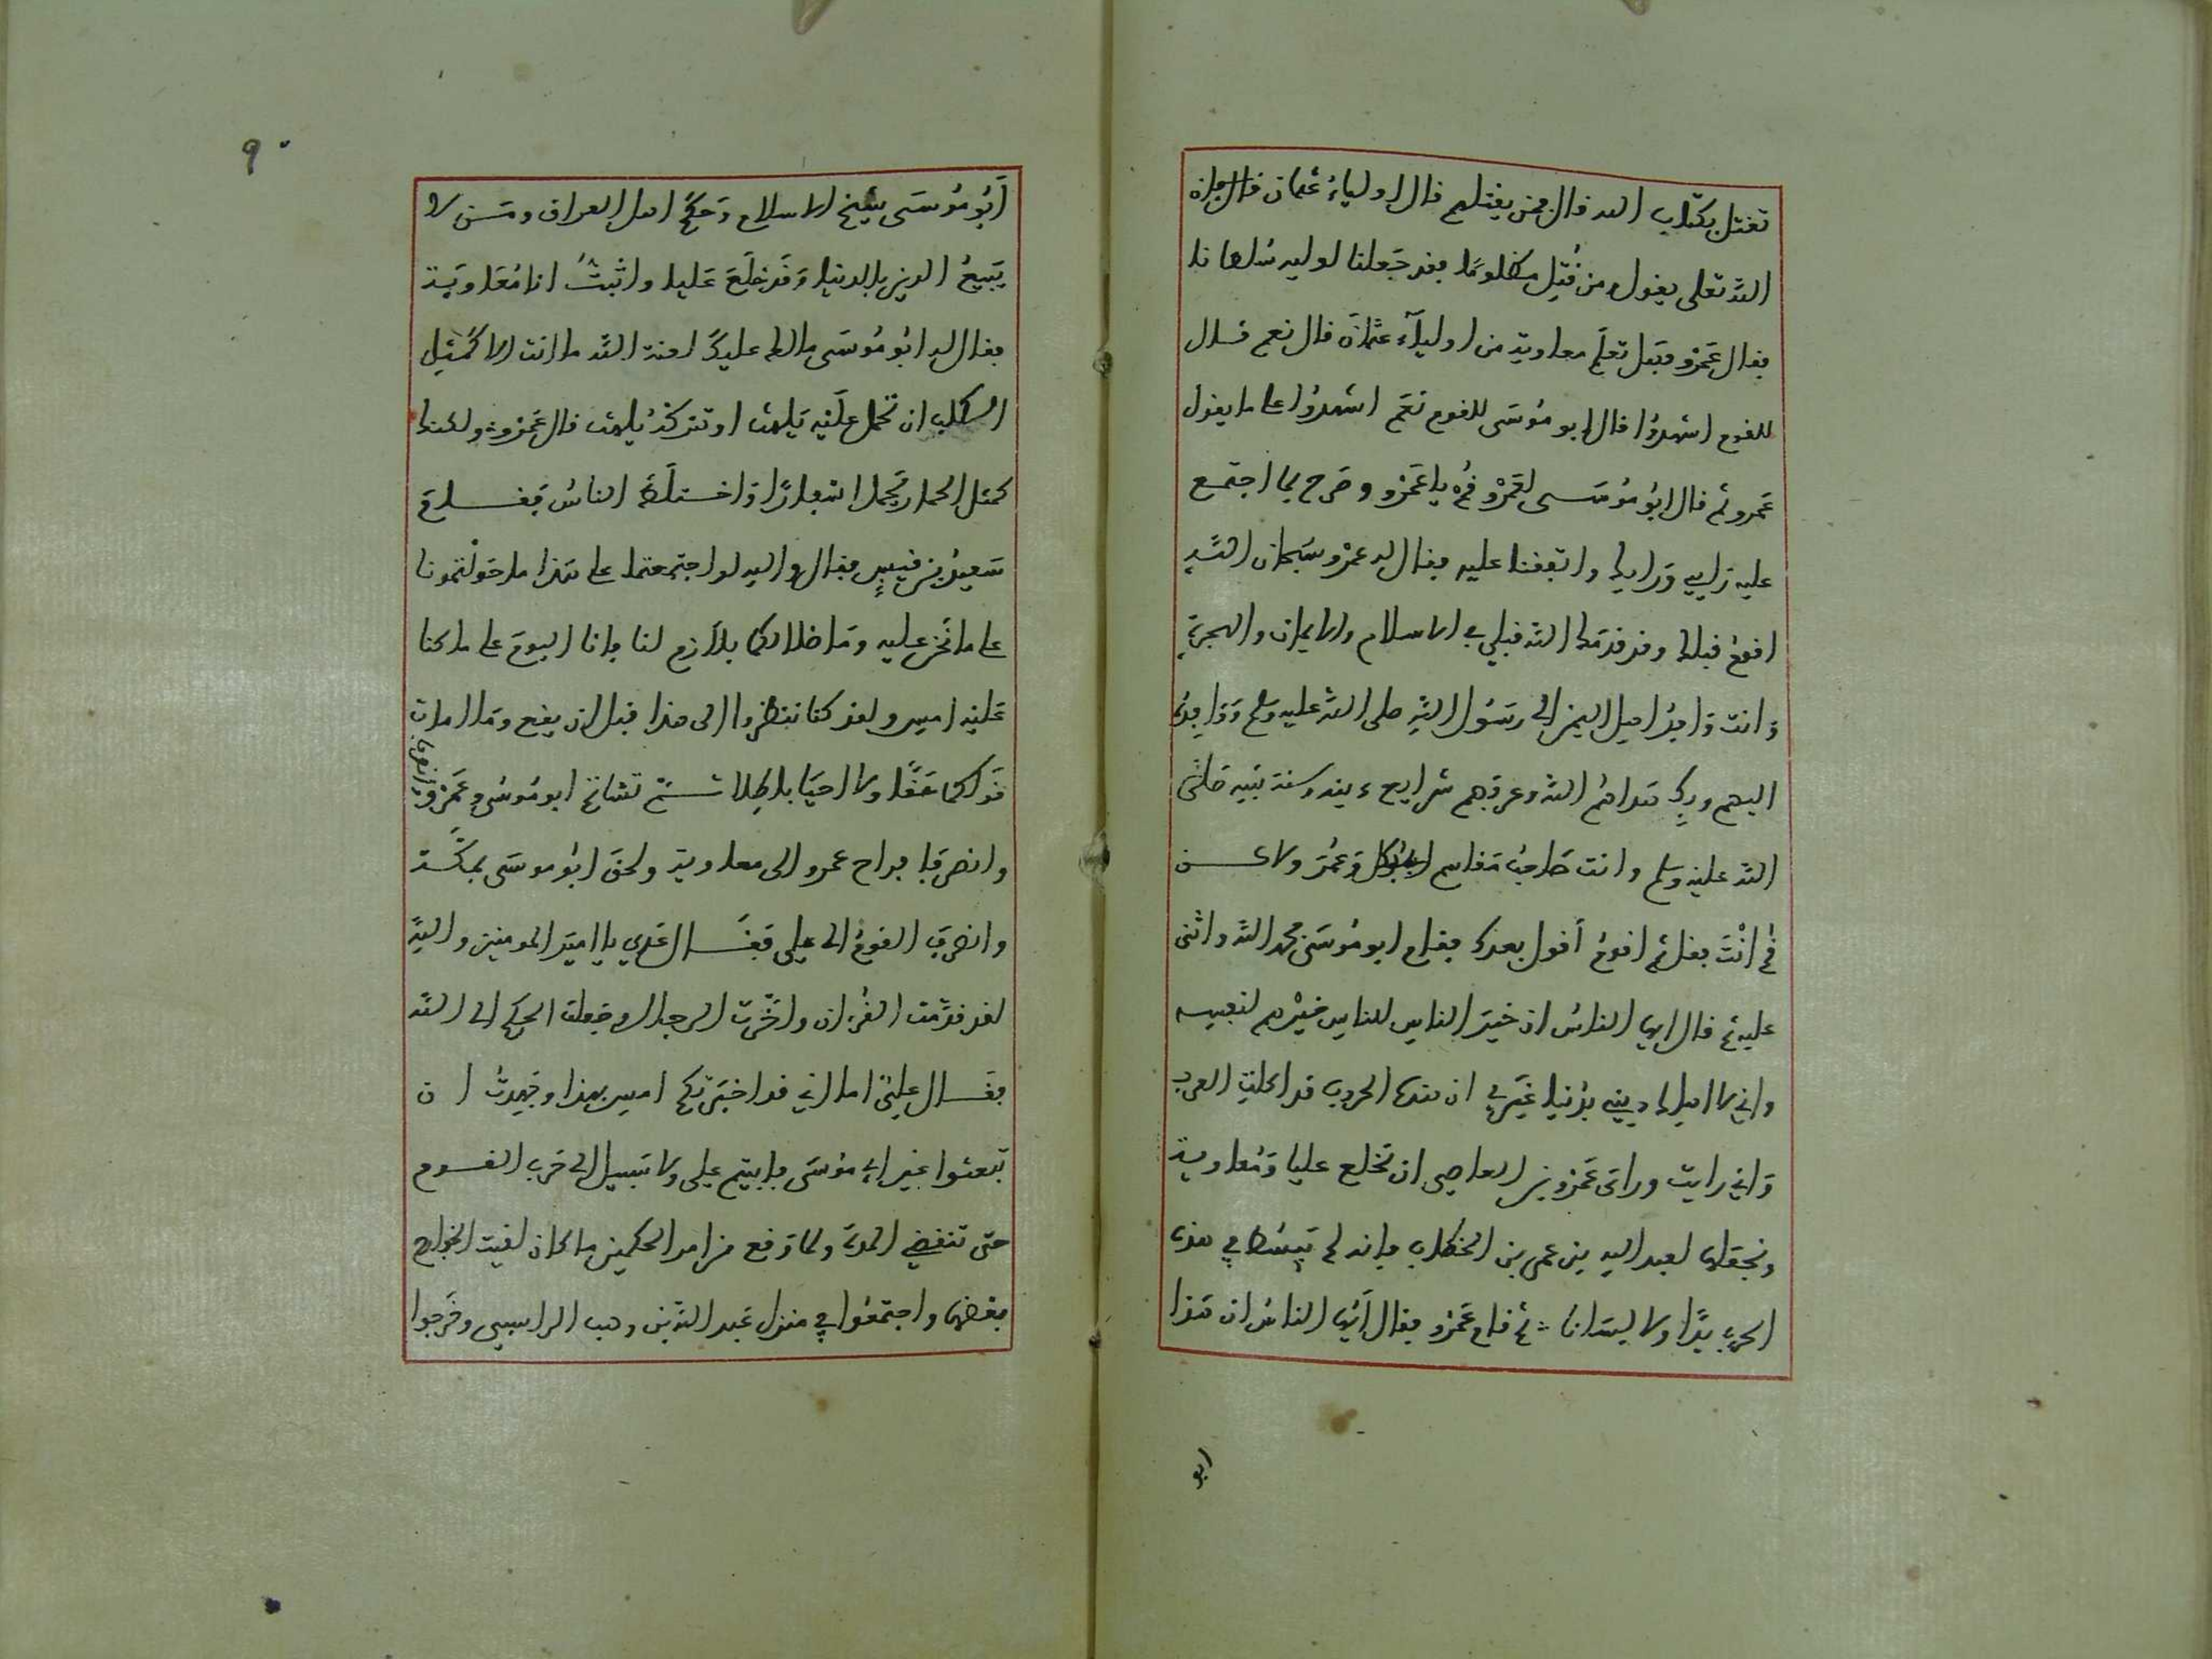 تقتل بكتاب الله قال فمن يقتلهم قال اولياءُ عثمان قال فان
الله تعلى يقول ومن قُتِل مظلومًا فقد جَعلنا لوليه سُلطانا
فقال عَمْرو فهَل تعلَم معاوية من اولياءَ عثمان قال نعم قال
للقوم اشهدُوا قال ابو مُوسَى للقوم نعَم اشهدُوا على ما يقول
عَمرو ثم قال ابو مُوسَى لعَمْرو قُمْ يا عَمْرو وصَرح بما اجتمع
عليه رَايي وَرايك واتفقنا عليه فقال له عمرْو سُبحان الله
اقومُ قبلك وقد قدمَك الله قبلي في الاسلام والايمان والهجرة
وَانت وَافدُ اهل اليمن الى رسَول الله صلى الله عليه وسلم وَوَافِدُه
اليهم وبكِ هَداهُم الله وعرفهم شرايع دينه وسنة نبيه صلى
الله عليْه وسلم وانت صَاحبُ مَقاسم ابى بَكر وَعمَر ولاكن
قُم انْتَ فقل ثم اقومُ أقول بعدك فقام ابو مُوسَى فحمد الله واثنى
عليه ثم قال ايها الناسُ ان خيَر الناس للناس خيْرهم لنفسه
واني لا اهلك ديني بدُنيا غيَري ان هذه الحروب قد اكلت العرب
وَاني رايت وراى عَمْرو بن العاصي ان نخلع عليا وَمُعاوية
ونجعَلها لعبد الله بن عمر بن الخطاب فانه لم يَبسُط في هذه
الحرب يَدًا ولا لِسَانا ثم قام عَمْرو فقال أَيها الناسُ ان هَذا
ابو
٩٠
أَبُو مُوسَى شيخ الاسلام وَحَكَمُ اهل العراق ومَن لا
يَبيعُ الدين بالدنيا وَقَد خلَعَ عَليا واثبتُ انا مُعَاوِيَة
فقال له ابُو مُوسَى مالك عليكَ لعنة الله ما انت الا كمَثل
الكلب ان تحمل علَيْه يَلهث او تتركهُ يَلهث قال عَمْرو ولكنك
كمثل الحمار يَحمل اسفارًا وَاختلَط الناسُ فقام
سَعيدُ بن قيسٍ فقال والله لو اجتمعتما على هَذا ما حَوَّلتُمونا
على ما نَحن عليه وَما ضلالكما بلاَزم لنا وانا اليومَ على ما كنا
عَليْه امس ولقد كنا ننظروا الى هذا قبل ان يقع وَما امات
قَولكما حَقًّا ولا احيَا باطِلا ثم تشاتم ابو مُوسَى وعَمْرو
وانصرفا فراح عمرو الى معاوية ولحق ابُو موسَى بمكَّة
وانصرفَ القومُ الى علي فقَال عَدي يا اميَر المومنين والله
لقد قدَّمت القُرءان واخَّرت الرجال وجَعلت الحكم الى الله
فقَال عليٌّ اما اني قد اخبَرتكم امس بهذا وجَهدتُ ان
تبعثوا غير ابي مُوسَى فابيتم علي ولا سَبيل الى حَرب القوم
حتى تنقضي المدة ولما وَقع من امر الحكمين ما كان لقيت الخوارج
بعضها واجتمعُوا في منزل عَبد الله بن وهب الراسبي وخَرجوا